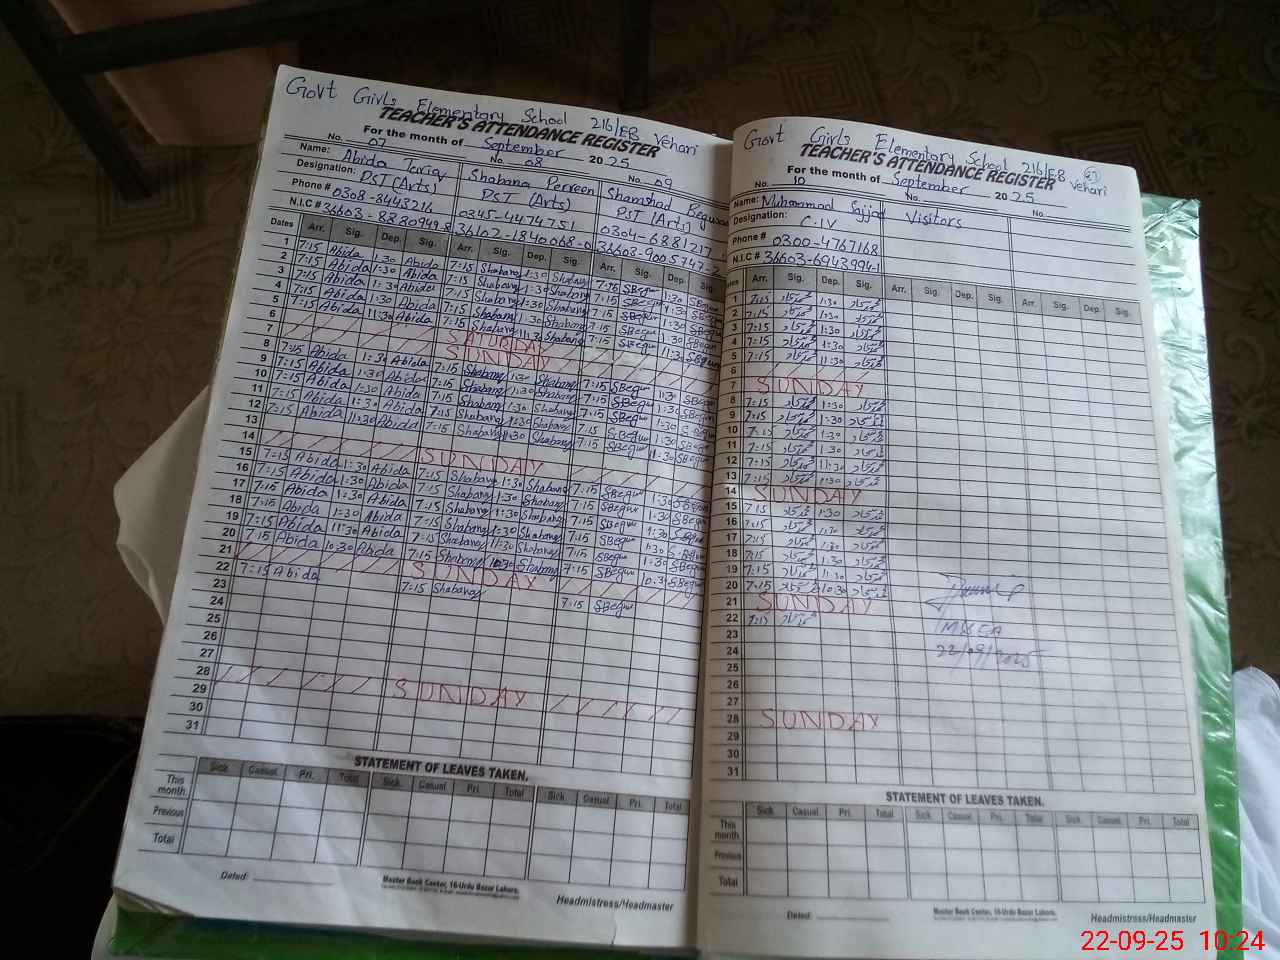 Govt Girls Elementary School 216/EB Vehari
TEACHER'S ATTENDANCE REGISTER
For the month of September 2025
No. 07 No. 08 No. 09
Name: Abida Tariq Shabana Perveen Shamshad Begum
Designation: PST (Arts) PST (Arts) PST (Arts)
Phone # 0308-8448216 0345-4474751 0304-6881217
N.I.C # 36603-8880949-8 36602-1840068-0 36603-9005747-2
Dates Arr. Sig. Dep. Sig. Arr. Sig. Dep. Sig. Arr. Sig. Dep. Sig.
1 7:15 Abida 1:30 Abida 7:15 Shabana 1:30 Shabana 7:15 SBegum 1:30 SBegum
2 7:15 Abida 1:30 Abida 7:15 Shabana 1:30 Shabana 7:15 SBegum 1:30 SBegum
3 7:15 Abida 1:30 Abida 7:15 Shabana 1:30 Shabana 7:15 SBegum 1:30 SBegum
4 7:15 Abida 1:30 Abida 7:15 Shabana 1:30 Shabana 7:15 SBegum 1:30 SBegum
5 7:15 Abida 11:30 Abida 7:15 Shabana 11:30 Shabana 7:15 SBegum 11:30 SBegum
6 SATURDAY
7 SUNDAY
8 7:15 Abida 1:30 Abida 7:15 Shabana 1:30 Shabana 7:15 SBegum 1:30 SBegum
9 7:15 Abida 1:30 Abida 7:15 Shabana 1:30 Shabana 7:15 SBegum 1:30 SBegum
10 7:15 Abida 1:30 Abida 7:15 Shabana 1:30 Shabana 7:15 SBegum 1:30 SBegum
11 7:15 Abida 1:30 Abida 7:15 Shabana 1:30 Shabana 7:15 SBegum 1:30 SBegum
12 7:15 Abida 11:30 Abida 7:15 Shabana 11:30 Shabana 7:15 SBegum 11:30 SBegum
13
14 SUNDAY
15 7:15 Abida 1:30 Abida 7:15 Shabana 1:30 Shabana 7:15 SBegum 1:30 SBegum
16 7:15 Abida 1:30 Abida 7:15 Shabana 1:30 Shabana 7:15 SBegum 1:30 SBegum
17 7:15 Abida 1:30 Abida 7:15 Shabana 1:30 Shabana 7:15 SBegum 1:30 SBegum
18 7:15 Abida 1:30 Abida 7:15 Shabana 1:30 Shabana 7:15 SBegum 1:30 SBegum
19 7:15 Abida 11:30 Abida 7:15 Shabana 11:30 Shabana 7:15 SBegum
20 7:15 Abida 10:30 Abida 7:15 Shabana 10:30 Shabana 7:15 SBegum 10:30 SBegum
21 SUNDAY
22 7:15 Abida 7:15 Shabana 7:15 SBegum
23
24
25
26
27
28 SUNDAY
29
30
31
STATEMENT OF LEAVES TAKEN.
Sick. Casual. Pri. Total Sick. Casual. Pri. Total Sick. Casual. Pri. Total
This month
Previous
Total
Dated:
Master Book Center, 16-Urdu Bazar Lahore.
Headmistress/Headmaster
Govt Girls Elementary School 216/EB Vehari
TEACHER'S ATTENDANCE REGISTER
For the month of September 2025
No. 10 No. No.
Name: Muhammad Sajjad Visitors
Designation: C.IV
Phone # 0300-4767168
N.I.C # 36603-6943994-1
Dates Arr. Sig. Dep. Sig. Arr. Sig. Dep. Sig. Arr. Sig. Dep. Sig.
1 7:15 1:30
2 7:15 1:30
3 7:15 1:30
4 7:15 1:30
5 7:15 11:30
6
7 SUNDAY
8 7:15 1:30
9 7:15 1:30
10 7:15 1:30
11 7:15 1:30
12 7:15 11:30
13 7:15 1:30
14 SUNDAY
15 7:15 1:30
16 7:15 1:30
17 7:15 1:30
18 7:15 1:30
19 7:15 11:30
20 7:15 10:30
21 SUNDAY
22 7:15
MEA
22/09/2025
23
24
25
26
27
28 SUNDAY
29
30
31
STATEMENT OF LEAVES TAKEN.
Sick. Casual. Pri. Total Sick. Casual. Pri. Total Sick. Casual. Pri. Total
This month
Previous
Total
Dated:
Master Book Center, 16-Urdu Bazar Lahore.
Headmistress/Headmaster
22-09-25 10:24